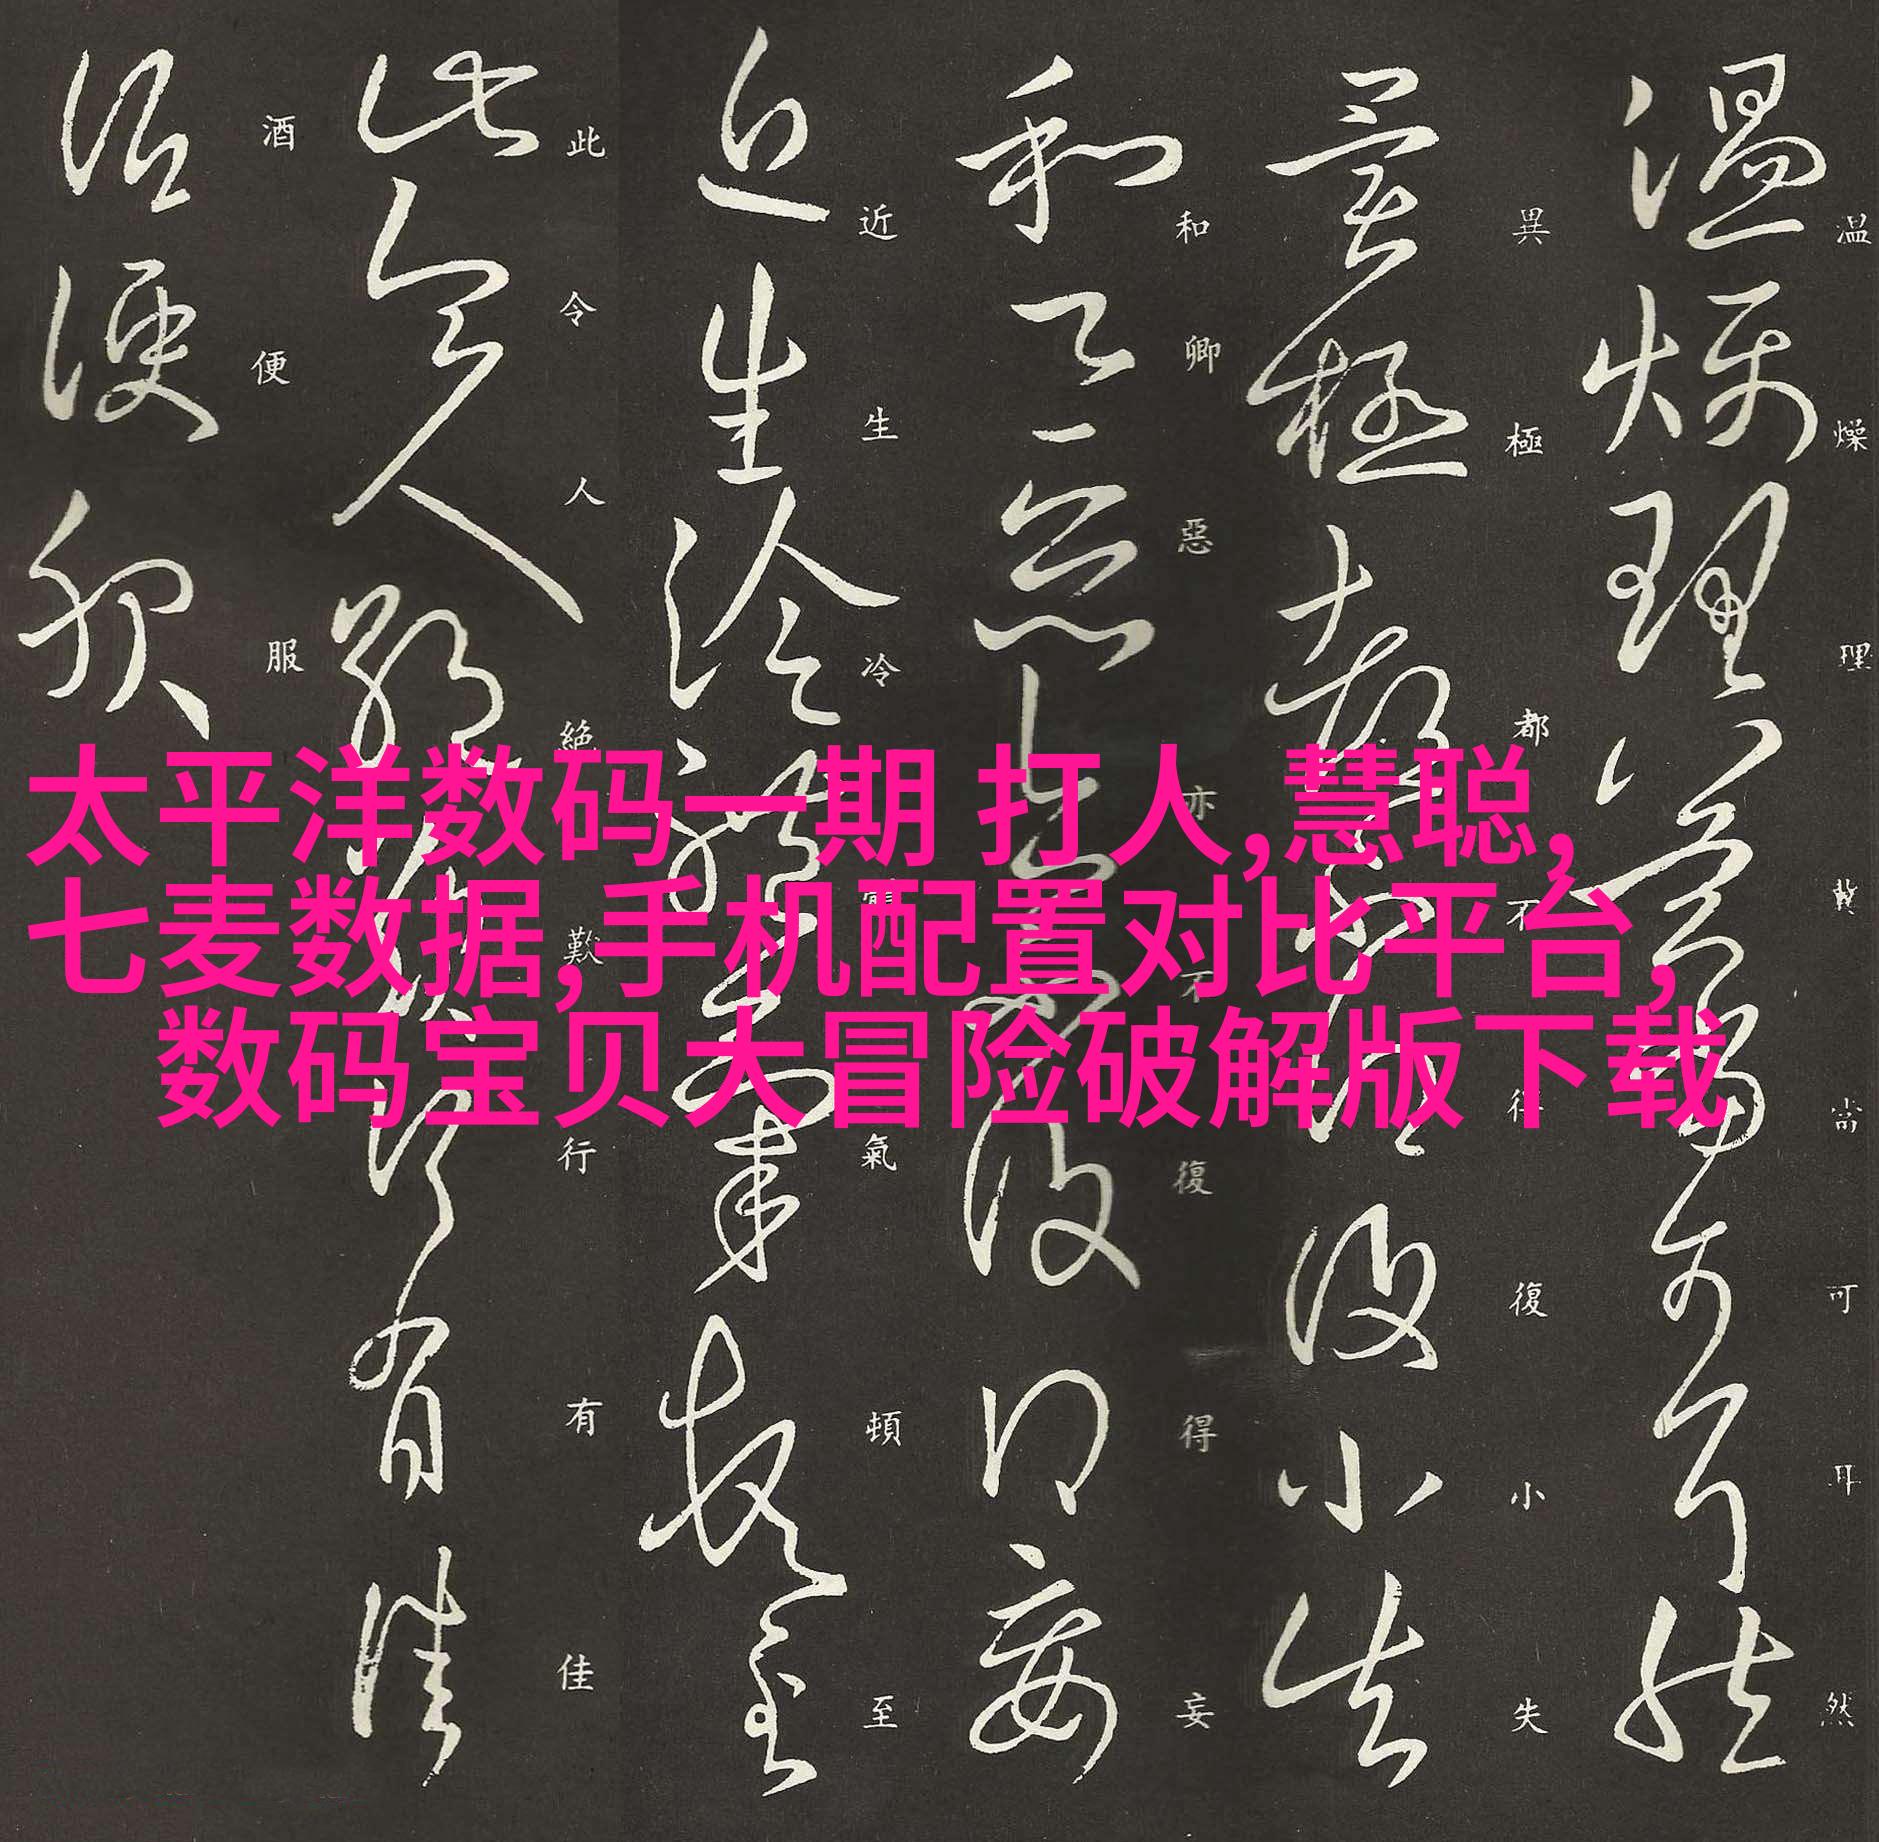 太平洋数码一期 打人,慧聪,
七麦数据,手机配置对比平台,
数码宝贝大冒险破解版下载
温燥理冀當可耳然
異極都不得復小失
和卿惡亦不復得妄
近生冷氣頓至
此令人絶歎行有佳
酒便服